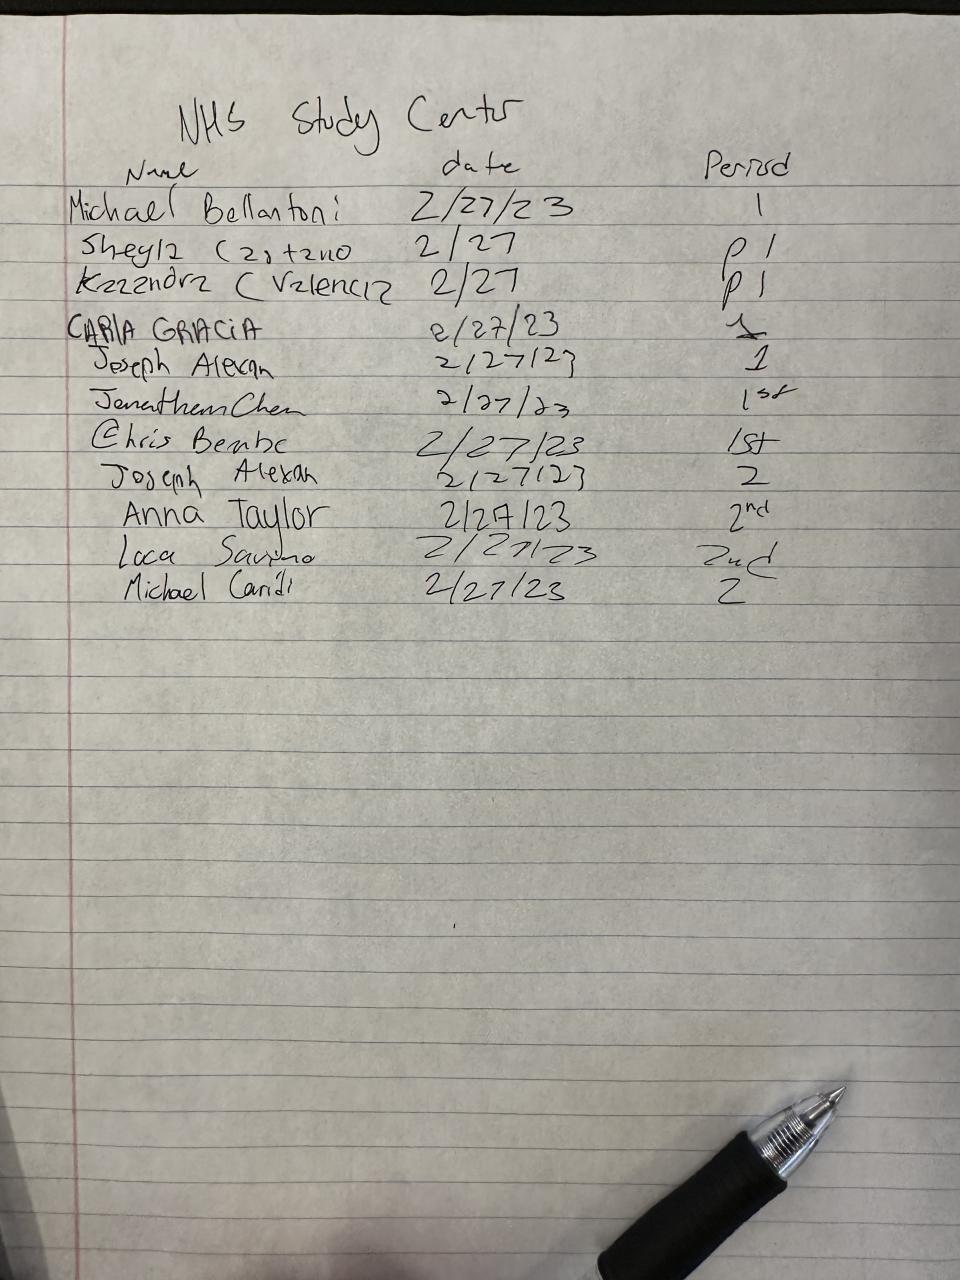 NHS Study Center
Name date Period
Michael Bellantoni 2/27/23 1
Sheyla Castano 2/27 p 1
Kazandra C Valencia 2/27 p 1
CARlA GRACiA 2/27/23 1
Joseph Alexan 2/27/23 1
Jonathan Chen 2/27/23 1st
Chris 2/27/23 1st
Joseph Alexan 2/27/23 2
Anna Taylor 2/27/23 2nd
Luca Savino 2/27/23 2nd
Michael Caridi 2/27/23 2